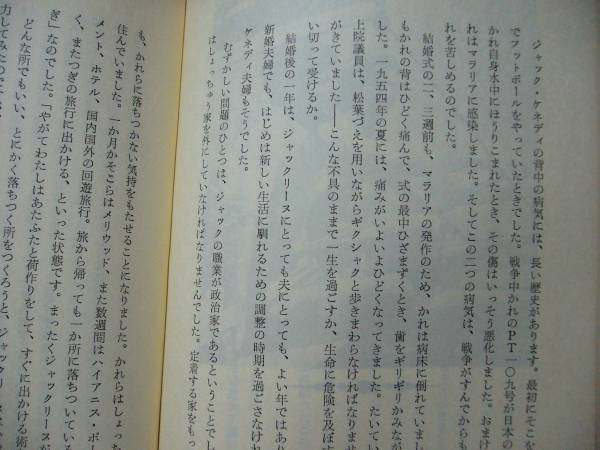 ジャック・ケネディの背中の病気には、長い歴史があります。最初にそこを
でフットボールをやっていたときでした。戦争中かれのPT一〇九号が日本の
かれ自身水中にほうりこまれたとき、その傷はいっそう悪化しました。おまけ
れはマラリアに感染しました。そしてこの二つの病気は、戦争がすんでからも
れを苦しめるのでした。
結婚式の二、三週前も、マラリアの発作のため、かれは病床に倒れていまし
もかれの背はひどく痛んで、式の最中ひざまずくとき、歯をギリギリかみなが
した。一九五四年の夏には、痛みがいよいよひどくなってきました。たいてい
上院議員は、松葉づえを用いながらギクシャクと歩きまわらなければなりませ
がきていました――こんな不具のままで一生を過ごすか、生命に危険を及ぼす
い切って受けるか。
結婚後の一年は、ジャックリーヌにとっても夫にとっても、よい年ではあり
新婚夫婦でも、はじめは新しい生活に馴れるための調整の時期を過ごさなけれ
ケネディ夫婦もそうでした。
むずかしい問題のひとつは、ジャックの職業が政治家であるということでし
はしょっちゅう家を外にしていなければなりませんでした。定着する家をもっ
も、かれらに落ちつかない気持をもたせることになりました。かれらはしょっ
住んでいました。一か月かそこらはメリウッド、また数週間はハイアニス・ポー
メント、ホテル、国内国外の回遊旅行。旅から帰っても一か所に落ちついている
く、またつぎの旅行に出かける、といった状態です。まったくジャックリーヌが
ぎ」なのでした。「やがてわたしはあたふたと荷作りをして、すぐに出かける術
どんな所でもいい、とにかく落ちつく所をつくろうと、ジャックリーヌは
力してみたのです